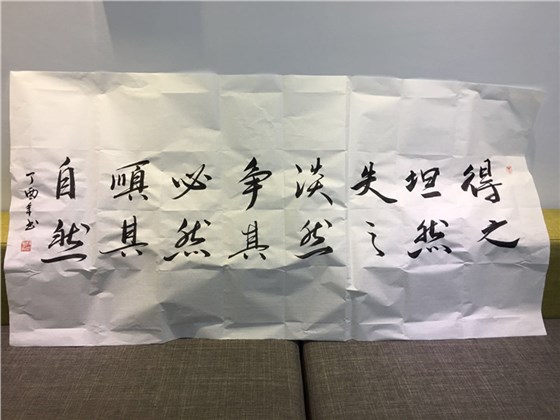 得之
坦然
失之
淡然
争其
必然
順其
自然
丁酉年书